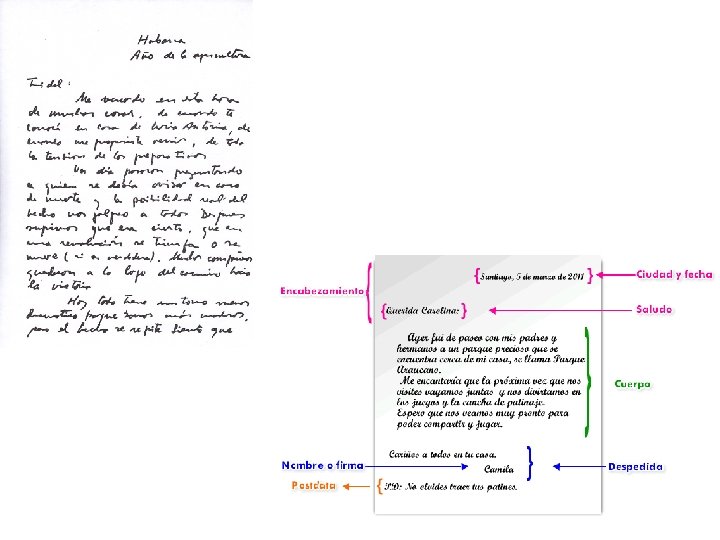 Habana
Año de la agricultura
Fidel:
Me recuerdo en esta hora
de muchas cosas, de cuando te
conocí en casa de María Antonia, de
cuando me propusiste venir, de toda
la tensión de los preparativos
Un día pasaron preguntando
a quien se debía avisar en caso
de muerte y la posibilidad real del
hecho nos golpeó a todos. Después
supimos que era cierto, que en
una revolución se triunfa o se
muere (si es verdadera). Muchos compañeros
quedaron a lo largo del camino hacia
la victoria
Hoy todo tiene un tono menos
dramático porque somos más maduros,
pero el hecho se repite. Siento que
Santiago, 5 de marzo de 2011
Ciudad y fecha
Encabezamiento
Querida Carolina:
Saludo
Ayer fui de paseo con mis padres y
hermanos a un parque precioso que se
encuentra cerca de mi casa, se llama Parque
Araucano.
Me encantaría que la próxima vez que nos
visites vayamos juntas y nos divirtamos en
los juegos y la cancha de patinaje.
Espero que nos veamos muy pronto para
poder compartir y jugar.
Cuerpo
Cariños a todos en tu casa.
Camila
Nombre o firma
Despedida
Postdata
P.D: No olvides traer tus patines.